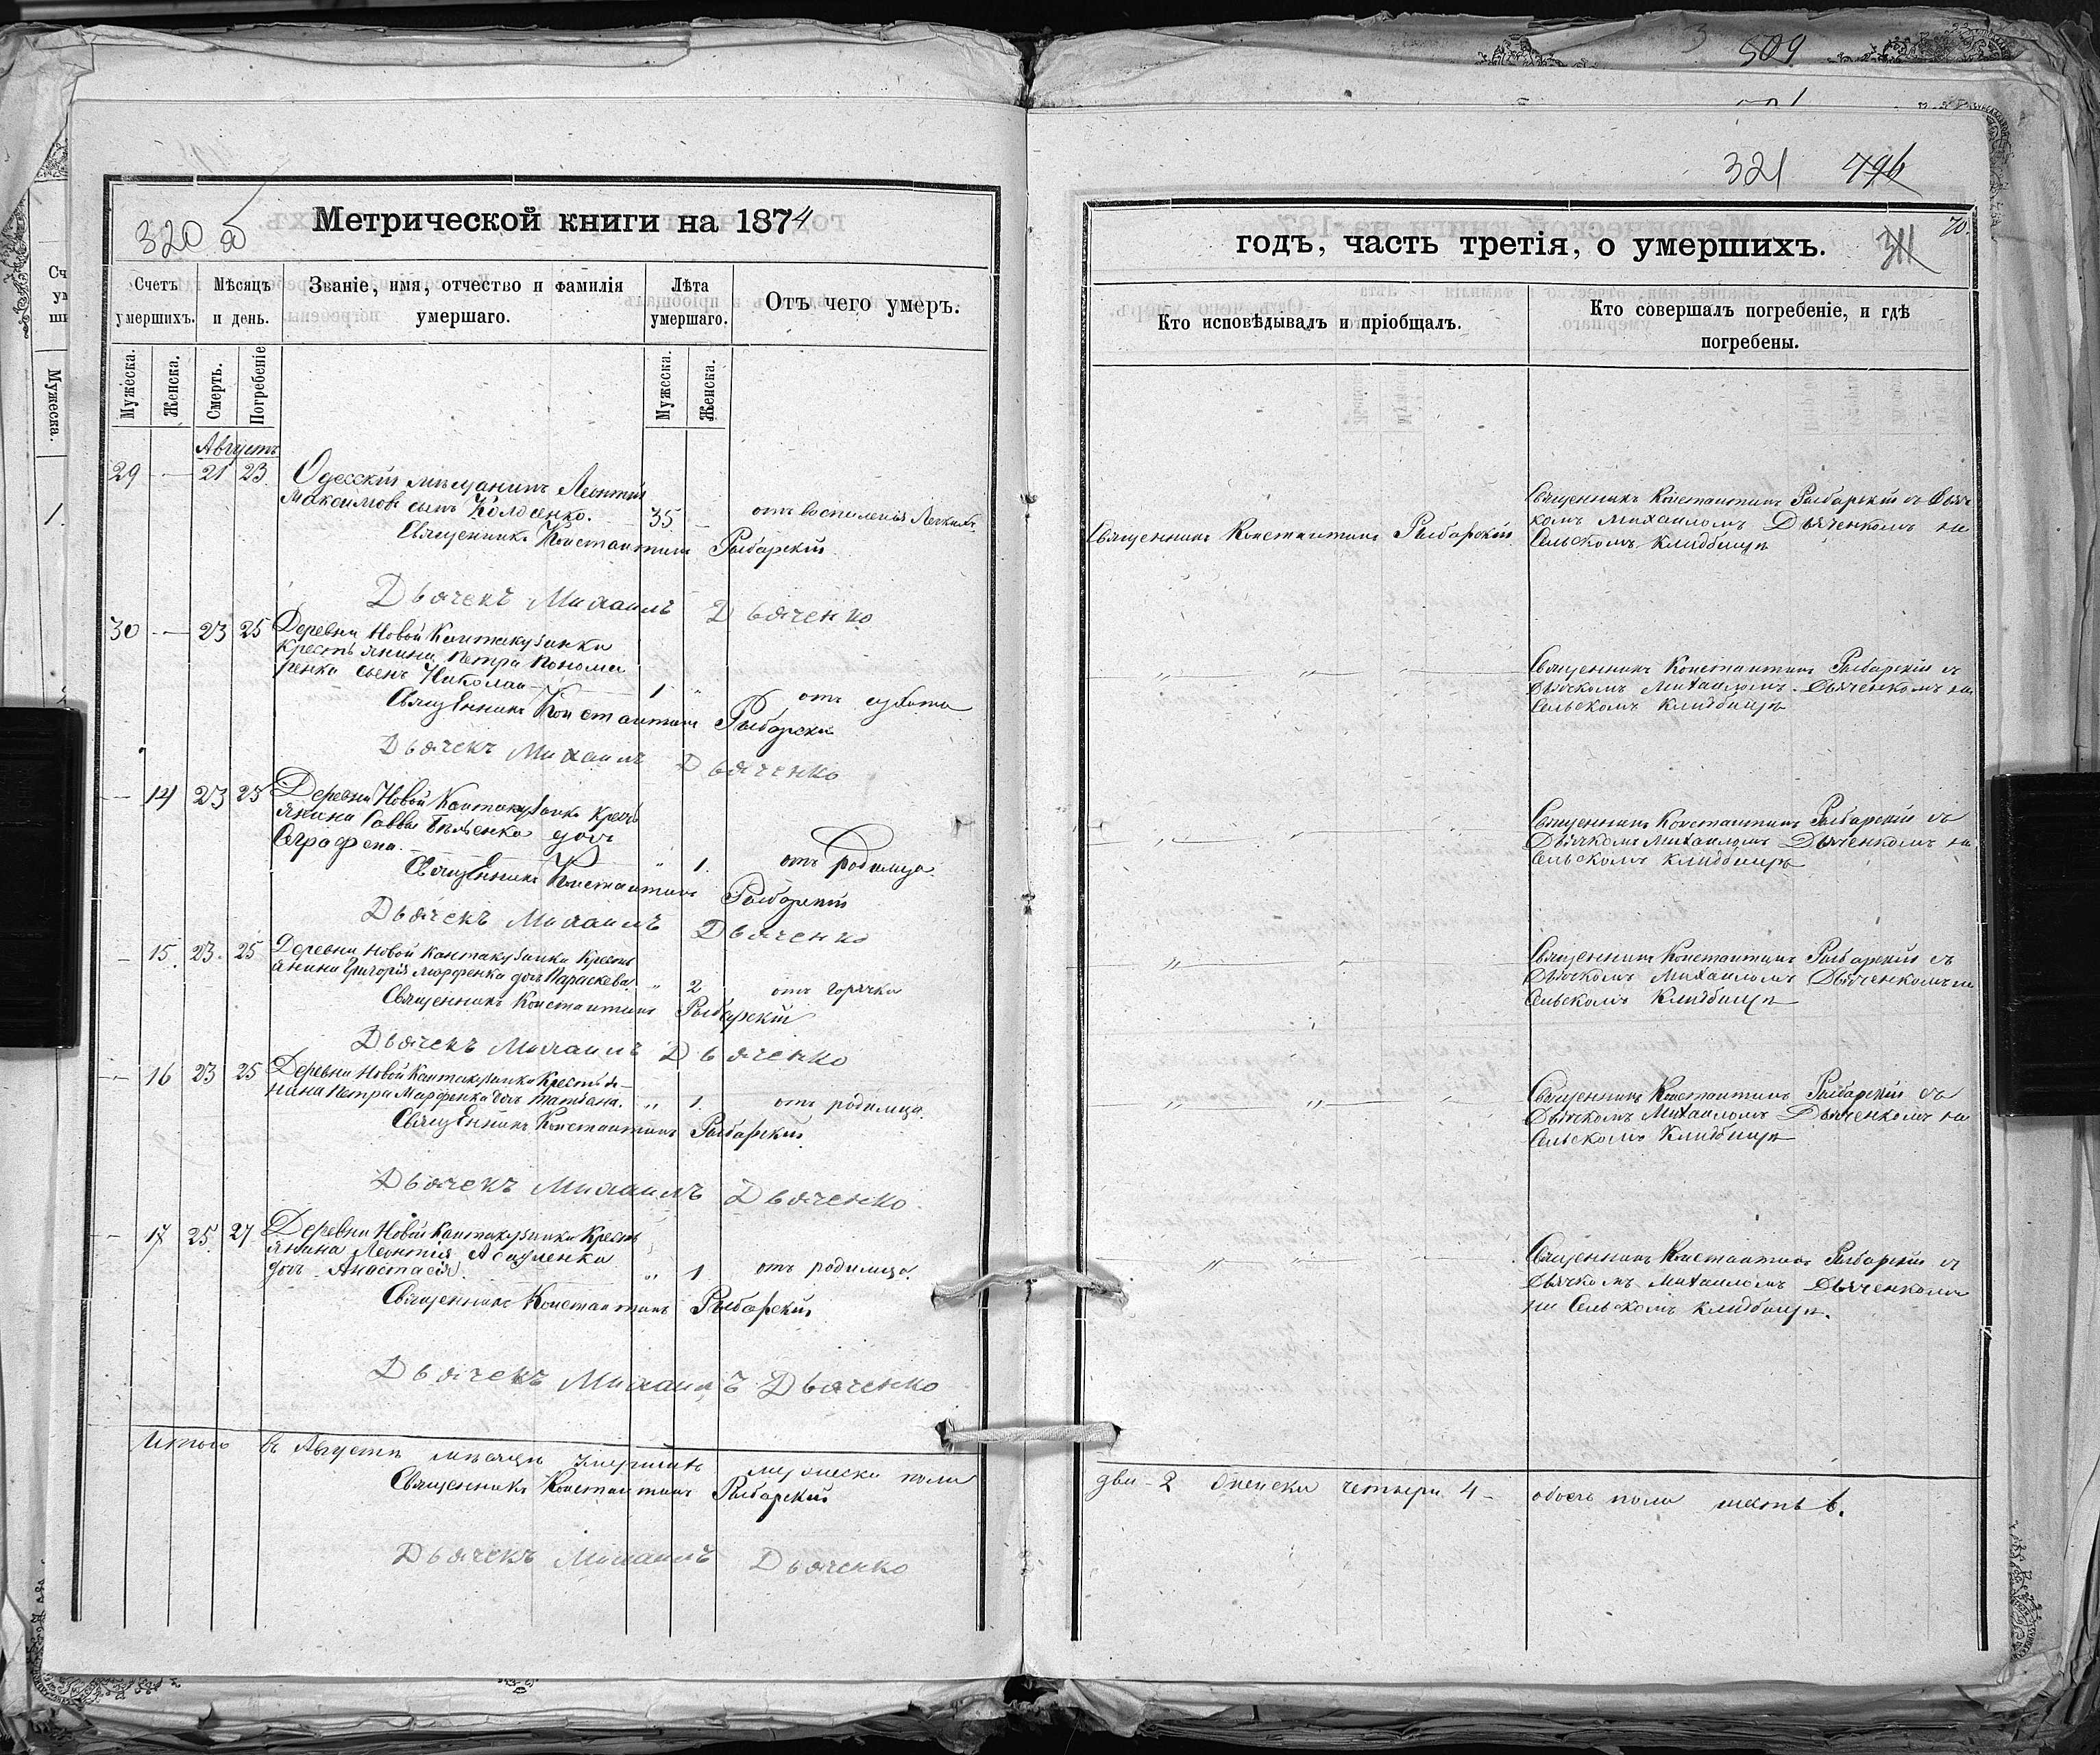 509
320 об
Метрической книги на 1874
Счетъ умершихъ.
Мѣсяцъ и день.
Званіе, имя, отчество и фамилія умершаго.
Лѣта умершаго.
Отъ чего умеръ.
Мужеска.
Женска.
Смерть.
Погребеніе
Мужеска.
Женска.
Августъ
29 — 21 23 Одесскій мѣщанинъ Леонтій
Максимовъ сынъ
35 — отъ воспаленія легкихъ
Священникъ Константинъ Рыбарскій
Дьячекъ Михаилъ Дьяченко
30 — 23 25 Деревни Новой Кантакузинки
крестьянина Петра Понома
ренка сынъ Николай
1 " отъ
Священникъ Константинъ Рыбарскій
Дьячекъ Михаилъ Дьяченко
— 14 23 25 Деревни Новой Кантакузинки Кресть
янина Саввы дочь
Аграфена.
" 1. отъ родимца.
Священникъ Константинъ Рыбарскій
Дьячекъ Михаилъ Дьяченко
— 15. 23. 25 Деревни Новой Кантакузинки Кресть
янина Григорія Марфенка дочь Параскева.
" 2 отъ горячки
Священникъ Константинъ Рыбарскій
Дьячекъ Михаилъ Дьяченко
— 16 23 25 Деревни Новой Кантакузинки Крестья-
нина Петра Марфенка дочь Татіана. " 1. отъ родимца.
Священникъ Константинъ Рыбарскій
Дьячекъ Михаилъ Дьяченко
— 17 25. 27 Деревни Новой Кантакузинки Кресть
янина Леонтія
дочь Анастасія. " 1 отъ родимца.
Священникъ Константинъ Рыбарскій
Дьячекъ Михаилъ Дьяченко
Итого въ Августѣ мѣсяцѣ умершихъ мужеска пола
Священникъ Константинъ Рыбарскій
Дьячекъ Михаилъ Дьяченко
321 496
70.
311
годъ, часть третія, о умершихъ.
Кто исповѣдывалъ и пріобщалъ.
Кто совершалъ погребеніе, и гдѣ погребены.
Священникъ Константинъ Рыбарскій
Священникъ Константинъ Рыбарскій съ Дьяч
комъ Михаиломъ Дьяченкомъ на
Сельскомъ кладбищѣ
" "
Священникъ Константинъ Рыбарскій съ
Дьячкомъ Михаиломъ Дьяченкомъ на
Сельскомъ кладбищѣ
" "
Священникъ Константинъ Рыбарскій съ
Дьячкомъ Михаиломъ Дьяченкомъ на
Сельскомъ кладбищѣ
" "
Священникъ Константинъ Рыбарскій съ
Дьячкомъ Михаиломъ Дьяченкомъ на
Сельскомъ кладбищѣ
" "
Священникъ Константинъ Рыбарскій съ
Дьячкомъ Михаиломъ Дьяченкомъ на
Сельскомъ кладбищѣ
" "
Священникъ Константинъ Рыбарскій съ
Дьячкомъ Михаиломъ Дьяченкомъ
на Сельскомъ кладбищѣ.
два - 2 Женска четыри 4 - обоего пола шесть 6.